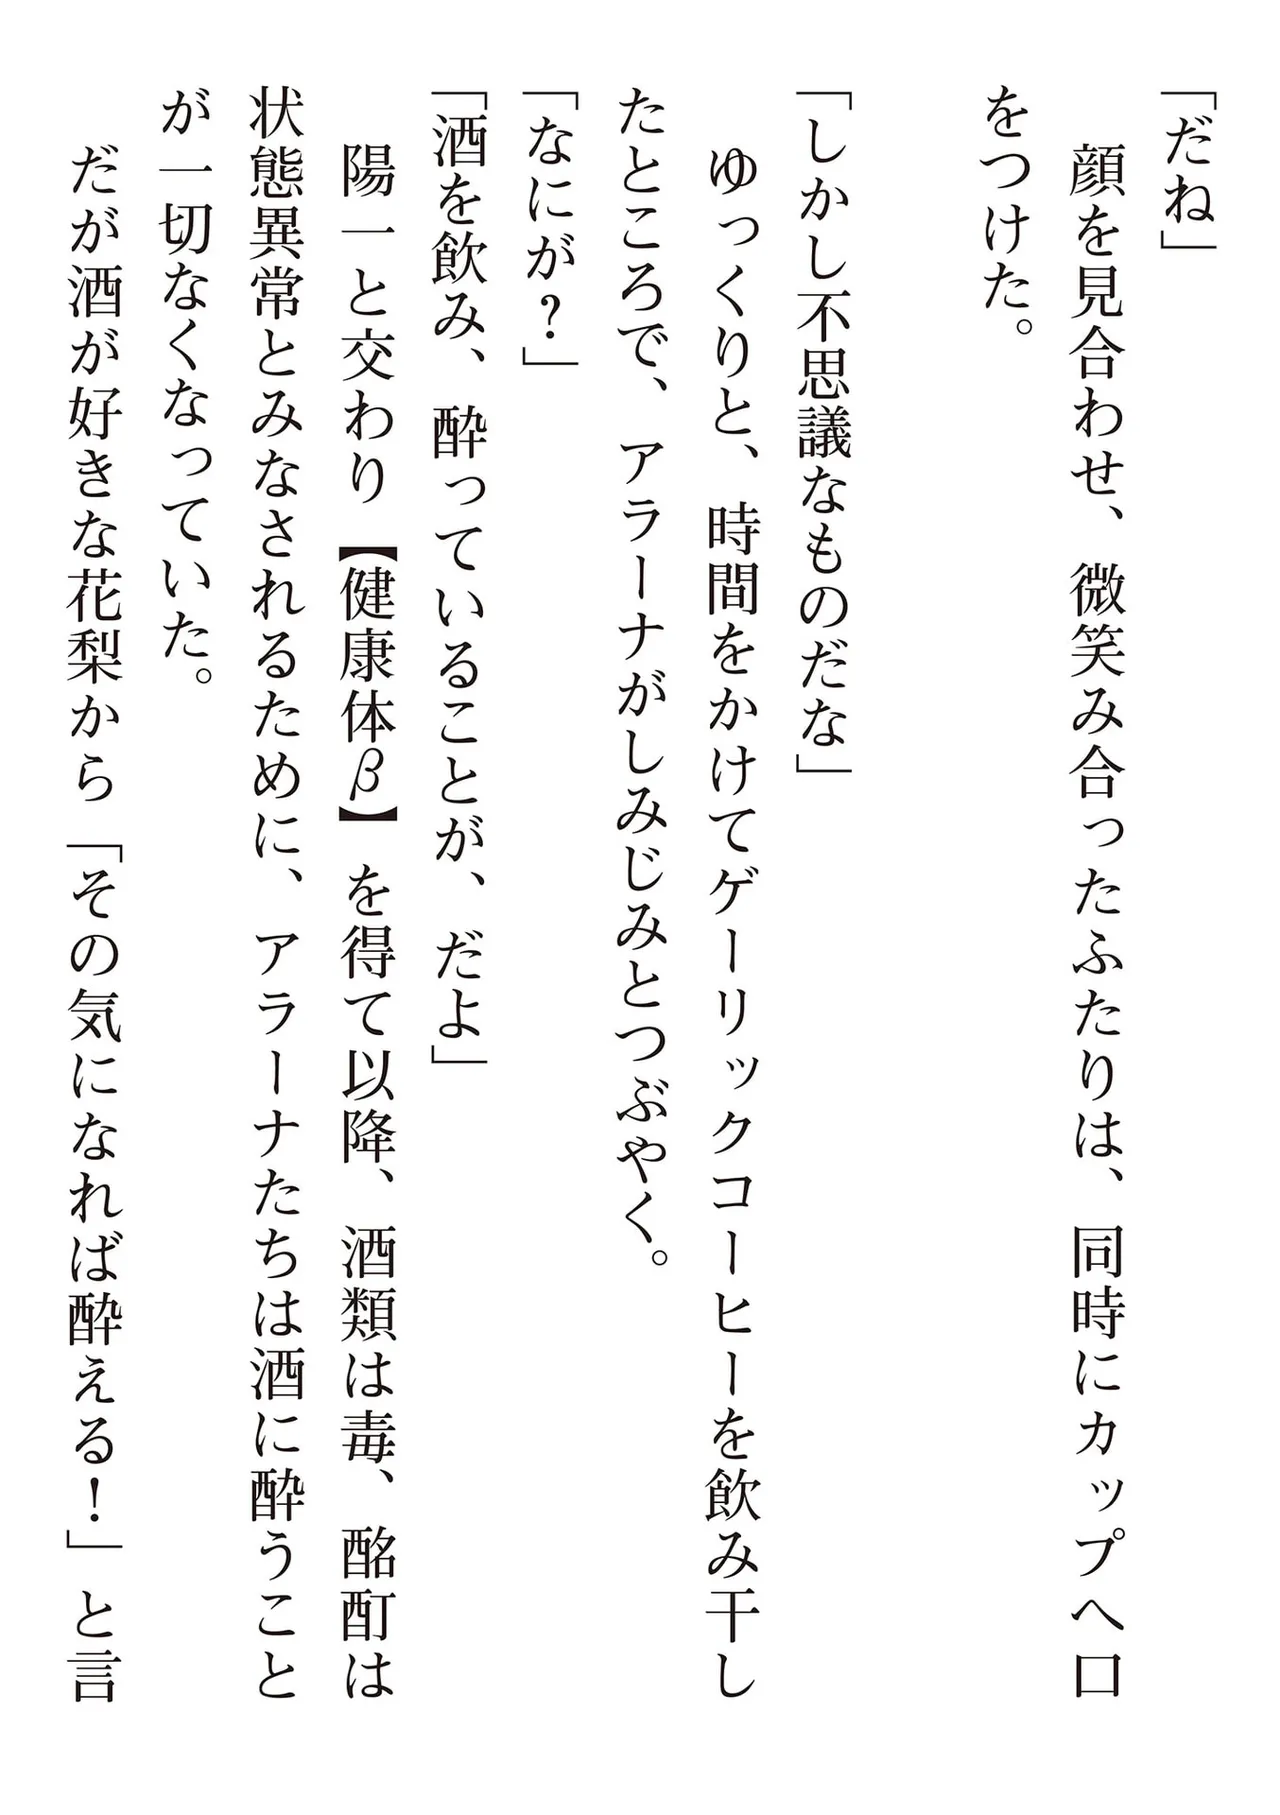 「だね」
　顔を見合わせ、微笑み合ったふたりは、同時にカップへ口
をつけた。
「しかし不思議なものだな」
　ゆっくりと、時間をかけてゲーリックコーヒーを飲み干し
たところで、アラーナがしみじみとつぶやく。
「なにが？」
「酒を飲み、酔っていることが、だよ」
　陽一と交わり【健康体β】を得て以降、酒類は毒、酩酊は
状態異常とみなされるために、アラーナたちは酒に酔うこと
が一切なくなっていた。
　だが酒が好きな花梨から「その気になれば酔える！」と言